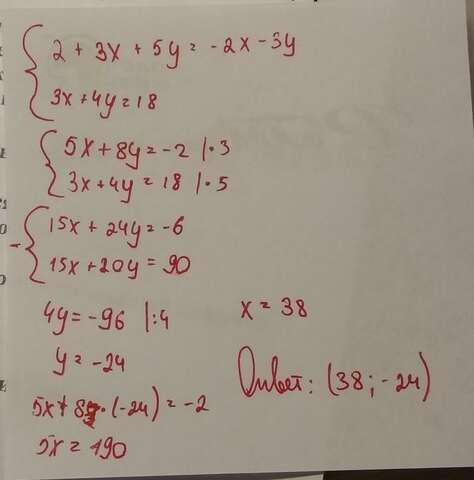 2 + 3x + 5y = -2x - 3y
3x + 4y = 18
5x + 8y = -2 | · 3
3x + 4y = 18 | · 5
15x + 24y = -6
-
15x + 20y = 90
4y = -96 |:4
y = -24
5x + 8 · (-24) = -2
5x = 190
x = 38
Ответ: (38; -24)